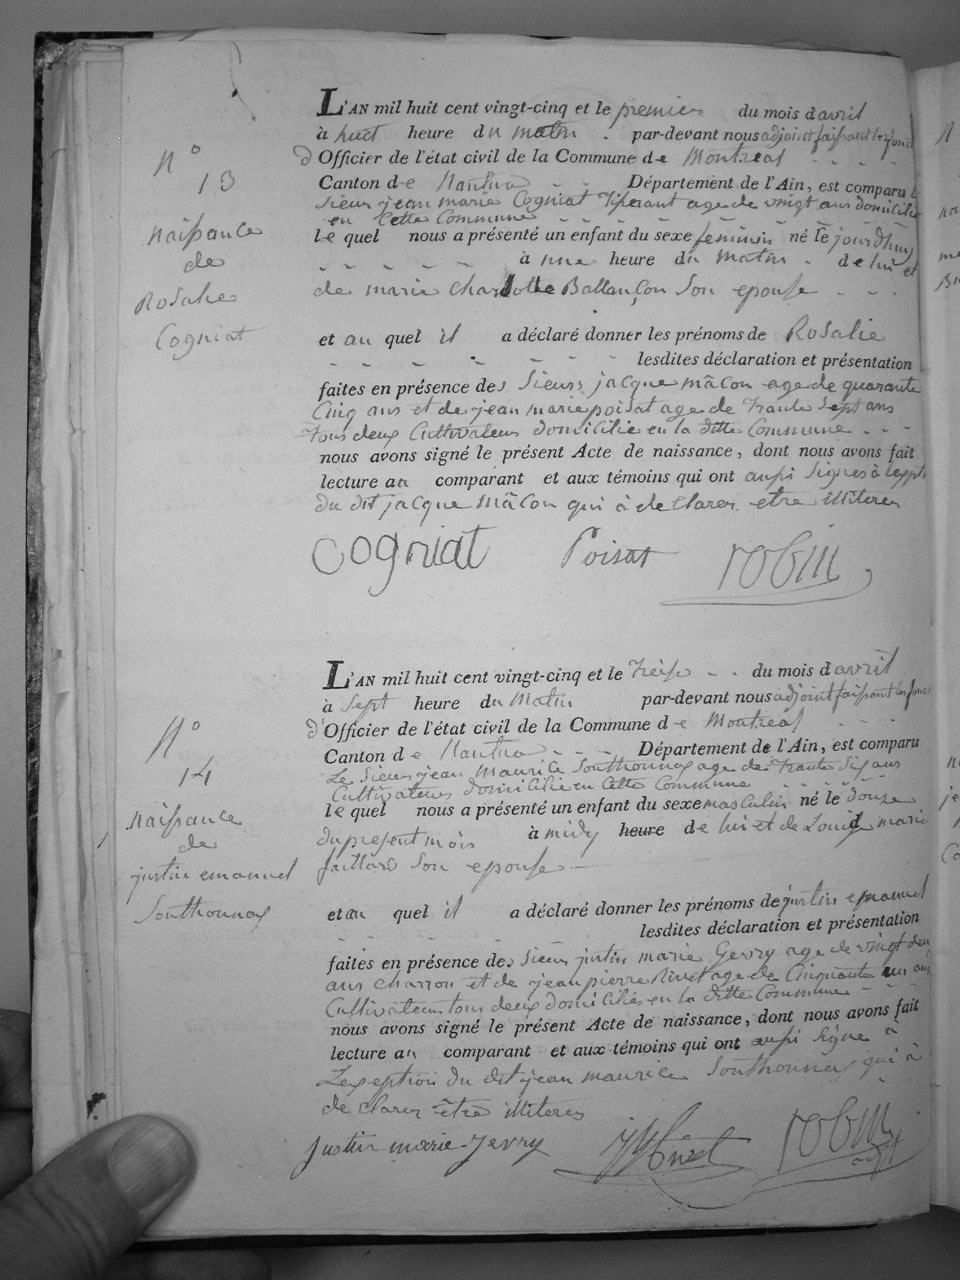 L'AN mil huit cent vingt-cinq et le premier du mois d avril
à huit heure du matin par-devant nous adjoint faisant les fonct
N° 13
d Officier de l'état civil de la Commune de Montreal
Canton de Nantua Département de l'Ain, est comparu le
Sieur jean marie Cogniat age de vingt ans domicilié
en Cette Commune
naissance
de
Rosalie
Cogniat
le quel nous a présenté un enfant du sexe feminin né le jourdhuy
à une heure du matin de lui et
de marie charlotte Ballançon Son epouse
et au quel il a déclaré donner les prénoms de Rosalie
lesdites déclaration et présentation
faites en présence des Sieurs jacque mâcon age de quarante
Cinq ans et de jean marie poisat age de trante Sept ans
tous deux Cultivateurs domicilié en la ditte Commune
nous avons signé le présent Acte de naissance, dont nous avons fait
lecture au comparant et aux témoins qui ont aussi Signés à
du dit jacque mâcon qui à de Clarer etre illiterer
Cogniat Poisat robin
L'AN mil huit cent vingt-cinq et le treise du mois d avril
à Sept heure du Matin par-devant nous adjoint faisant les fonct
N° 14
d' Officier de l'état civil de la Commune de Montreal
Canton de Nantua Département de l'Ain, est comparu
Le Sieur jean Maurice Southonnax age de trante Six ans
Cultivateur domicilié en Cette Commune
naissance
de
justin emanuel
Southonnax
le quel nous a présenté un enfant du sexe masculin né le douze
du present mois à midy heure de lui et de Louise marie
faillard Son epouse
et au quel il a déclaré donner les prénoms de justin emanuel
lesdites déclaration et présentation
faites en présence des Sieur justin marie Gevry age de vingt deux
ans charron et de jean pierre age de Cinquante un ans
Cultivateur tous deux domiciliés en la ditte Commune
nous avons signé le présent Acte de naissance, dont nous avons fait
lecture au comparant et aux témoins qui ont aussi Signe à
Lexeption du dit jean maurice Southonnax qui à
de clarer être illiterer
justin marie Jevry robin